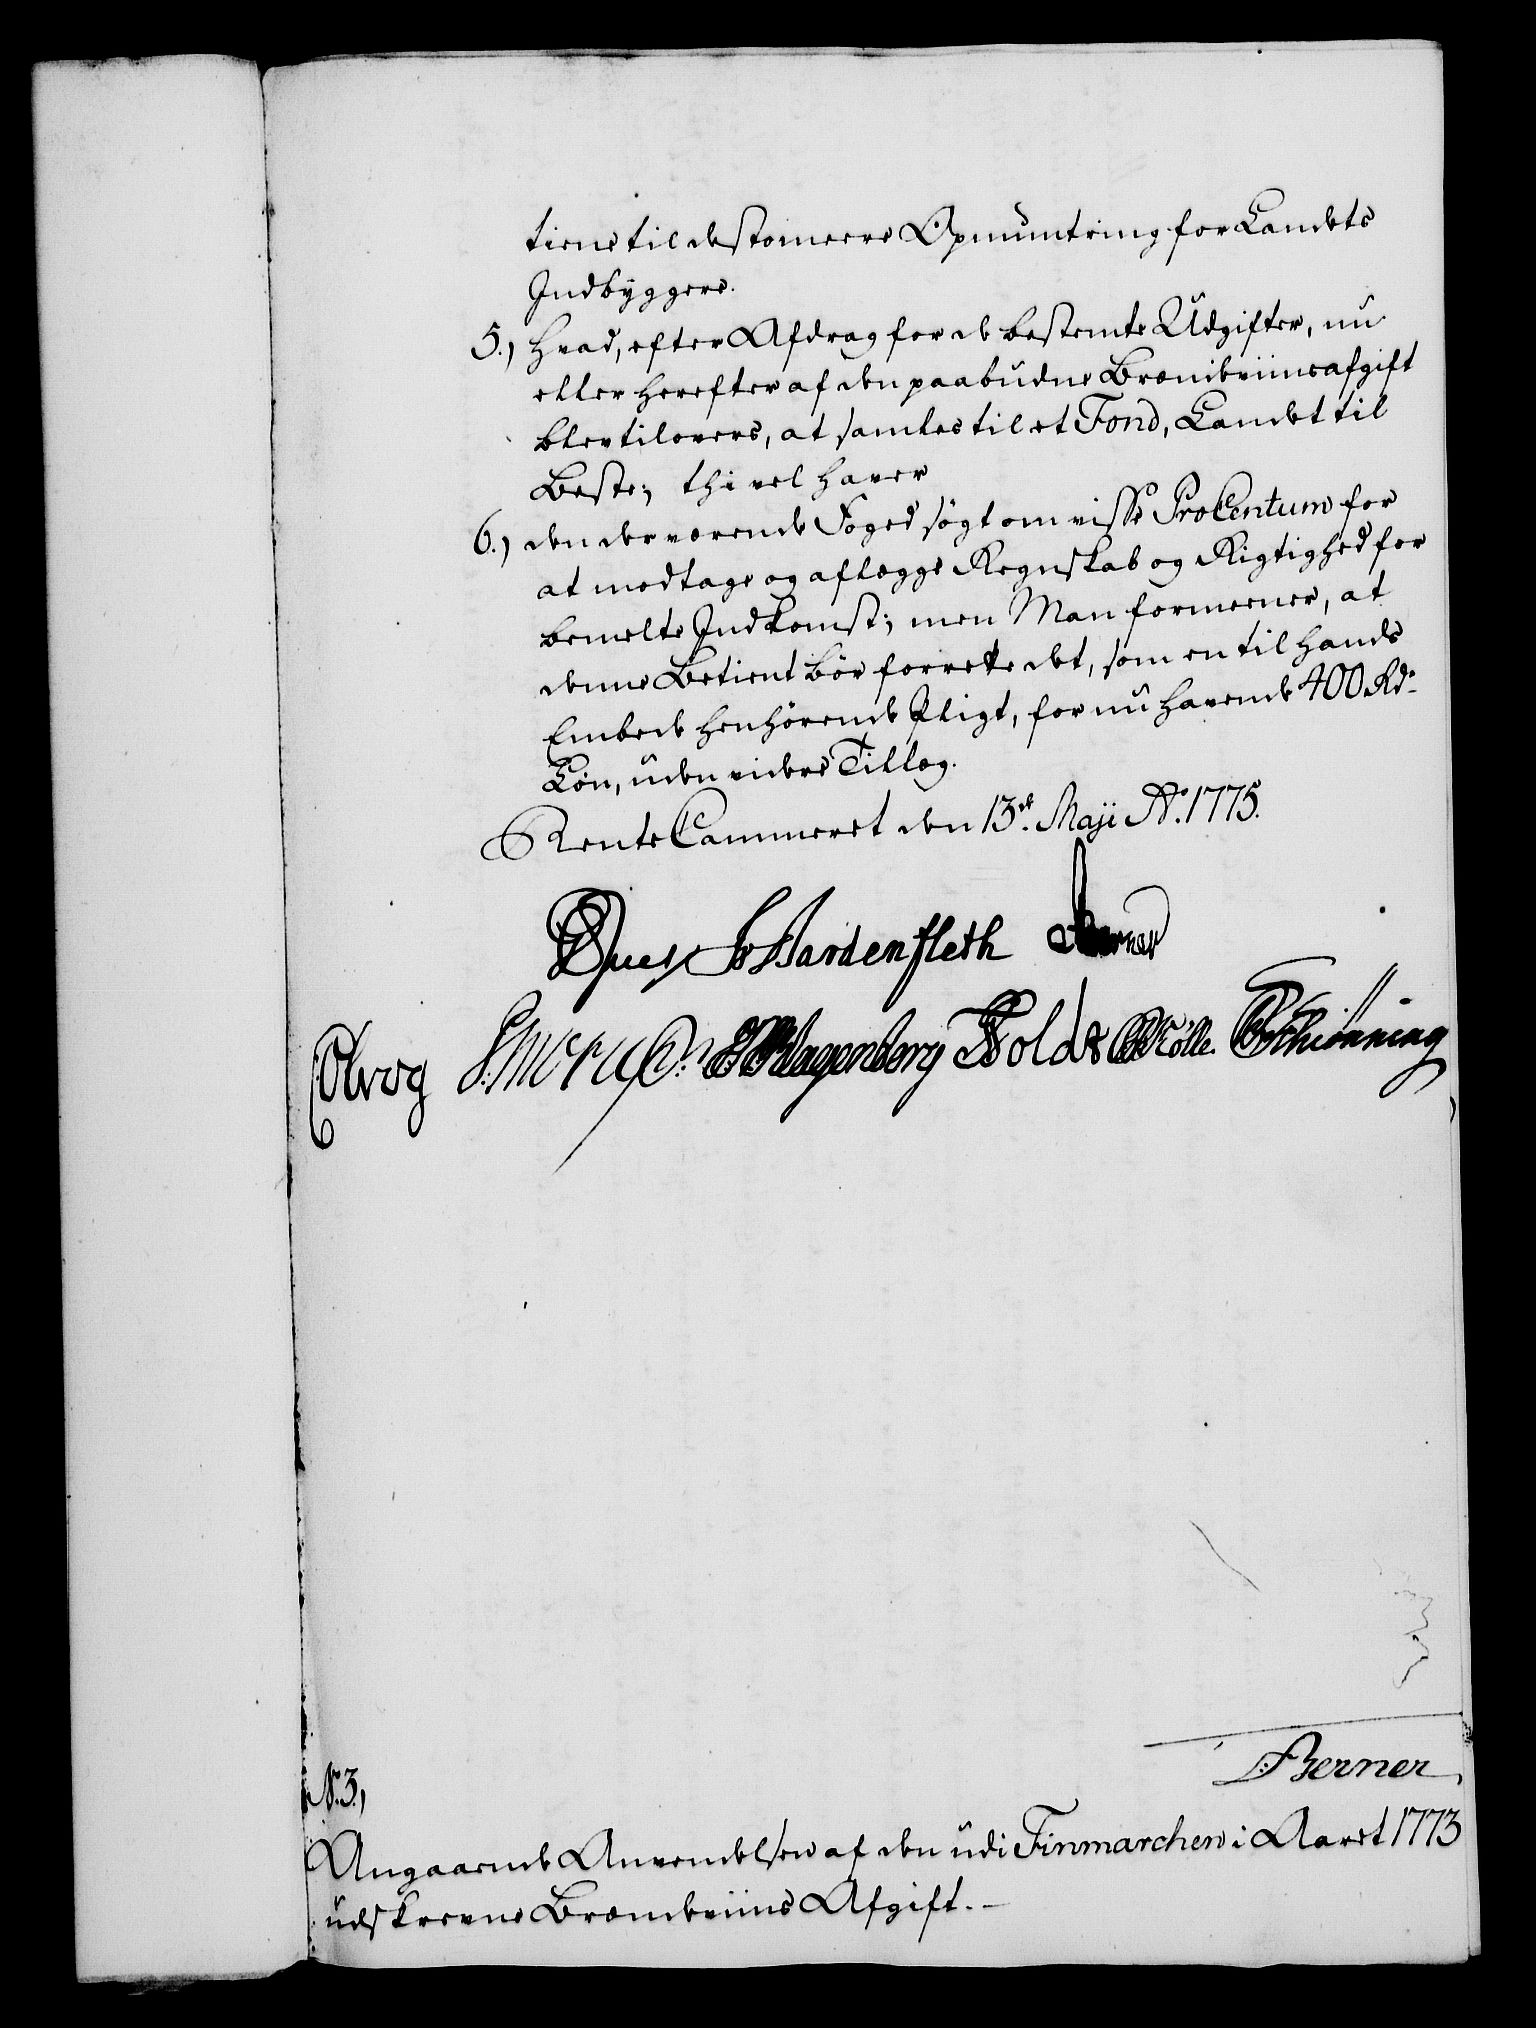 tiene til destomeere Opmuntring for Landets
Indbyggere.
5.) Hvad, efter Afdrag for de bestemte Udgifter, nu
eller herefter af den paabudne Brændeviinsafgift
blev tilovers, at samles til et Fond, Landet til
Beste; thi vel haver
6.) den der værende Foged søgt om visse ProCentum for
at modtage og aflægge Regnskab og Rigtighed for
bemelte Indkomst; men Man formeener, at
denne Betient bør forrette det, som en til hands
Embede henhørende Pligt, for nu havende 400 Rdr.
Løn, uden videre Tillæg.
RenteCammeret den 13de. Maji Ao. 1775.
Hardenfleth Berner
Klagenberg Holdt Schiønning
Berner
No. 3,)
Angaaende Anvendelsen af den udi Finmarchen i Aaret 1773
udskrevne Brændeviins Afgift.